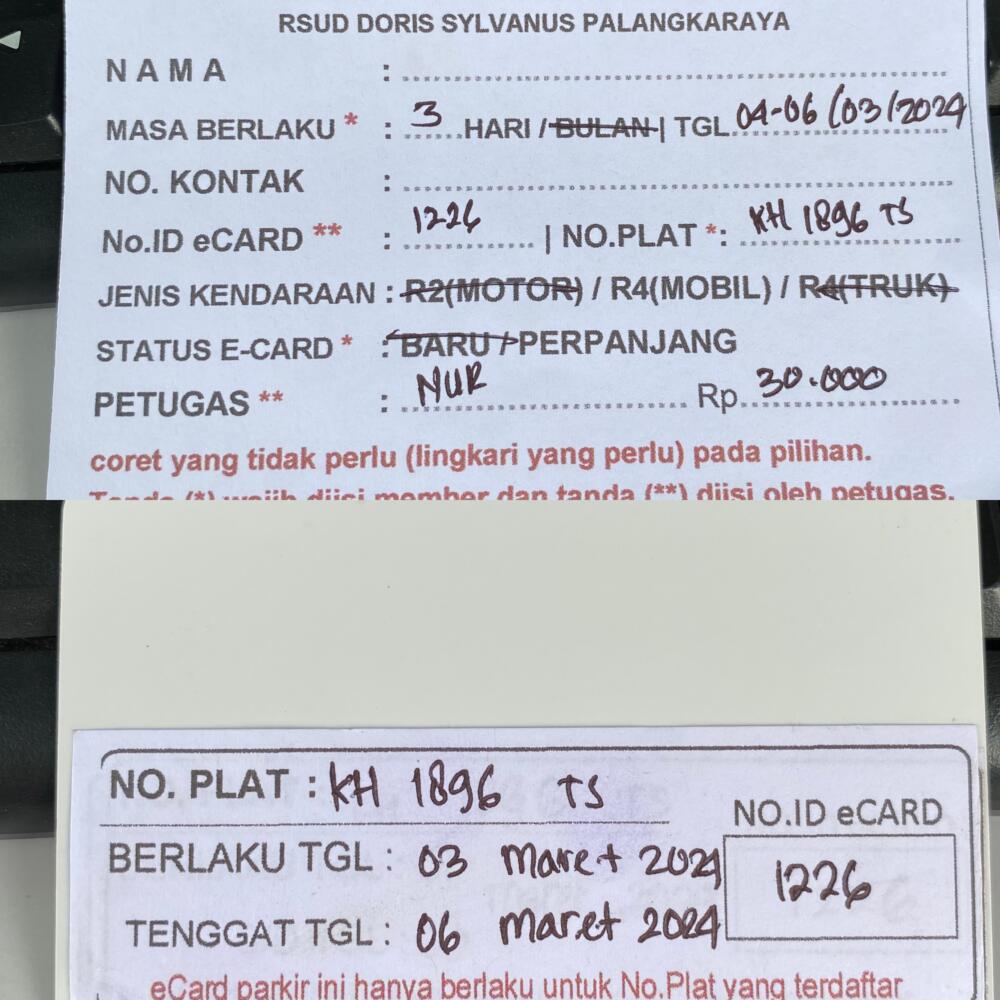 RSUD DORIS SYLVANUS PALANGKARAYA
N A M A :
MASA BERLAKU * : 3 HARI / BULAN | TGL 04-06/03/2024
NO. KONTAK :
No.ID eCARD ** : 1226 | NO.PLAT *: KH 1896 TS
JENIS KENDARAAN : R2(MOTOR) / R4(MOBIL) / R4(TRUK)
STATUS E-CARD * : BARU / PERPANJANG
PETUGAS ** : NUR Rp. 30.000
coret yang tidak perlu (lingkari yang perlu) pada pilihan.
Tanda (*) wajib diisi member dan tanda (**) diisi oleh petugas.
NO. PLAT : KH 1896 TS
NO.ID eCARD
BERLAKU TGL : 03 Maret 2024
1226
TENGGAT TGL : 06 Maret 2024
eCard parkir ini hanya berlaku untuk No.Plat yang terdaftar